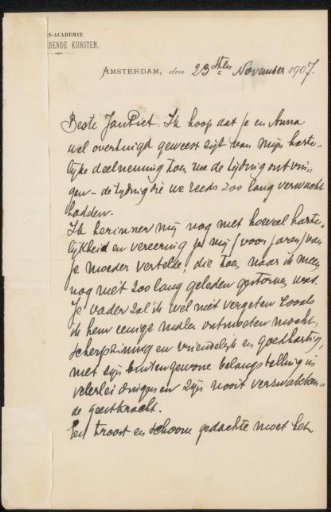 S-ACADEMIE
DENDE KUNSTEN.
AMSTERDAM, den 23sten November 1907.
Beste Jan Piet. Ik hoop dat je en Anna
wel overtuigd geweest zijt van mijn harte-
lijke deelneming toen we de tijding ontvin-
gen - de tijding die we reeds zoo lang verwacht
hadden.
Ik herinner mij nog met hoeveel harte-
lijkheid en vereering je mij (voor jaren) van
je moeder vertelde, die toen naar ik meen
nog niet zoo lang geleden gestorven was.
Je vader zal ik wel niet vergeten zooals
ik hem eenige malen ontmoeten mocht,
scherpzinnig en vriendelijk en goedhartig,
met zijn buitengewone belangstelling in
velerlei dingen en zijn nooit verzwakken-
de geestkracht.
Een troost en schoone gedachte moet het